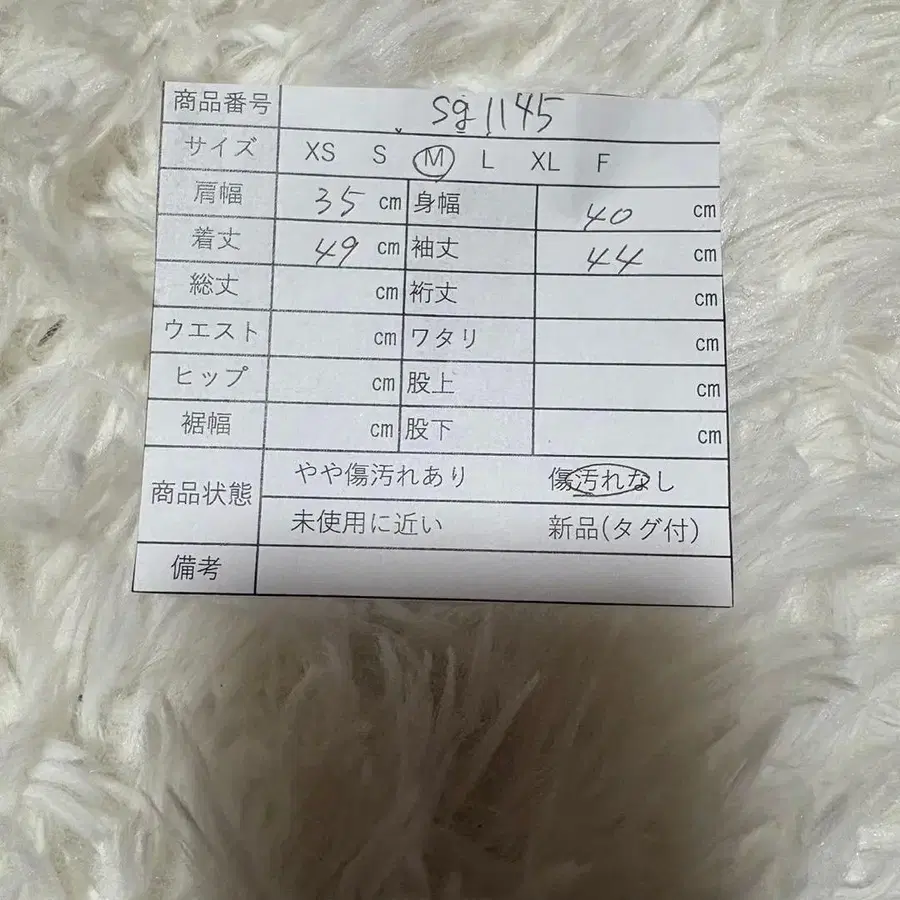 商品番号 sg1145
サイズ XS S M L XL F
肩幅 35 cm 身幅 40 cm
着丈 49 cm 袖丈 44 cm
総丈 cm 裄丈 cm
ウエスト cm ワタリ cm
ヒップ cm 股上 cm
裾幅 cm 股下 cm
商品状態 やや傷汚れあり 傷汚れなし
未使用に近い 新品(タグ付)
備考